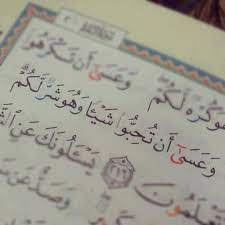 وَكُرْهٌ لَّكُمْ ۖ وَعَسَىٰٓ أَن تَكْرَهُوا۟
وَعَسَىٰٓ أَن تُحِبُّوا۟ شَيْـًٔا وَهُوَ شَرٌّ لَّكُمْ
تَعْلَمُونَ ٢١٦ يَسْـَٔلُونَكَ عَنِ ٱلشَّ
وَصَدٌّ عَن